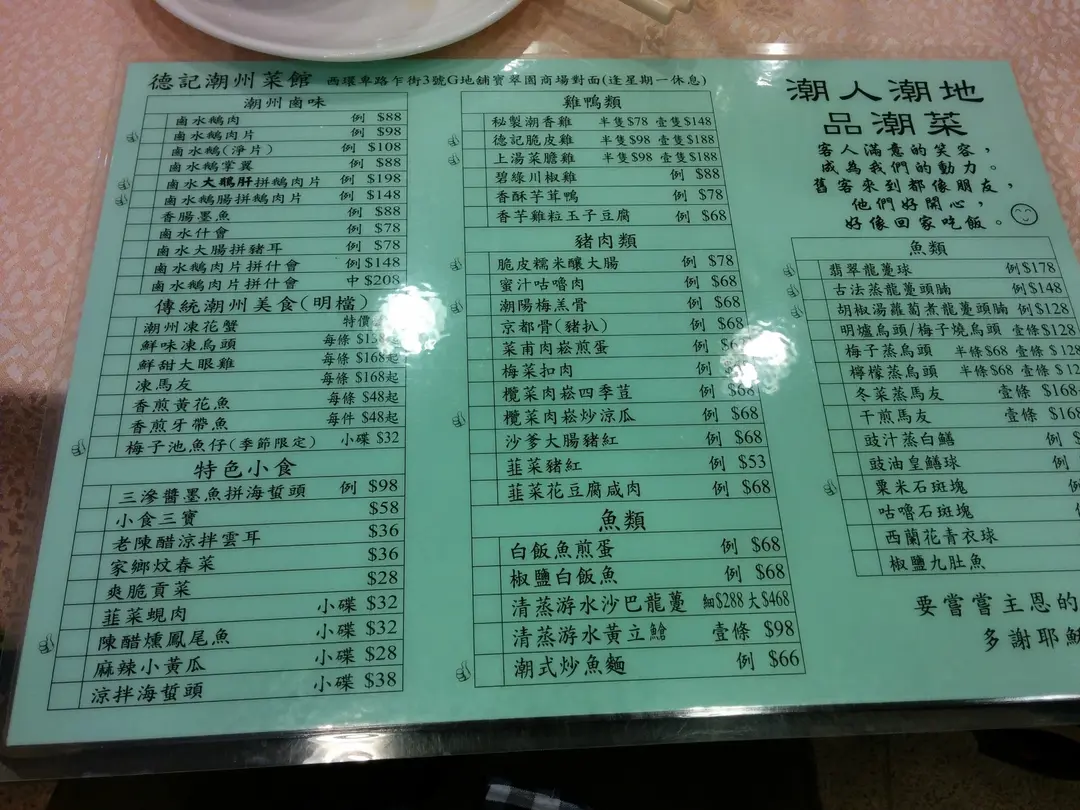 德記潮州菜館 西環卑路乍街3號G地舖寶翠園商場對面(逢星期一休息)
潮州鹵味
鹵水鵝肉 例 $88
鹵水鵝肉片 例 $98
鹵水鵝(淨片) 例 $108
鹵水鵝掌翼 例 $88
鹵水大鵝肝拼鵝肉片 例 $198
鹵水鵝腸拼鵝肉片 例 $148
香腸墨魚 例 $88
鹵水什會 例 $78
鹵水大腸拼豬耳 例 $78
鹵水鵝肉片拼什會 例 $148
鹵水鵝肉片拼什會 中 $208
傳統潮州美食(明檔)
潮州凍花蟹 特價
鮮味凍烏頭 每條
鮮甜大眼雞 每條 $168起
凍馬友 每條 $168起
香煎黃花魚 每條 $48起
香煎牙帶魚 每件 $48起
梅子池魚仔(季節限定) 小碟 $32
特色小食
三滲醬墨魚拼海蜇頭 例 $98
小食三寶 $58
老陳醋涼拌雲耳 $36
家鄉炆春菜 $36
爽脆貢菜 $28
韮菜蜆肉 小碟 $32
陳醋燻鳳尾魚 小碟 $32
麻辣小黃瓜 小碟 $28
涼拌海蜇頭 小碟 $38
雞鴨類
秘製潮香雞 半隻$78 壹隻$148
德記脆皮雞 半隻$98 壹隻$188
上湯菜膽雞 半隻$98 壹隻$188
碧綠川椒雞 例 $88
香酥芋茸鴨 例 $78
香芋雞粒玉子豆腐 例 $68
豬肉類
脆皮糯米釀大腸 例 $78
蜜汁咕嚕肉 例 $68
潮陽梅羔骨 例 $68
京都骨(豬扒) 例 $68
菜甫肉崧煎蛋 例
梅菜扣肉 例
欖菜肉崧四季荳 例 $68
欖菜肉崧炒涼瓜 例 $68
沙爹大腸豬紅 例 $68
韮菜豬紅 例 $53
韮菜花豆腐咸肉 例 $68
魚類
白飯魚煎蛋 例 $68
椒鹽白飯魚 例 $68
清蒸游水沙巴龍躉 細$288 大$468
清蒸游水黃立鱠 壹條 $98
潮式炒魚麵 例 $66
潮人潮地
品潮菜
客人滿意的笑容，
成為我們的動力。
舊客來到都像朋友，
他們好開心，
好像回家吃飯。
魚類
翡翠龍躉球 例 $178
古法蒸龍躉頭腩 例 $148
胡椒湯蘿蔔煮龍躉頭腩 例 $128
明爐烏頭/梅子燒烏頭 壹條 $128
梅子蒸烏頭 半條 $68 壹條 $128
檸檬蒸烏頭 半條 $68 壹條
冬菜蒸馬友 壹條 $168
干煎馬友 壹條 $168
豉汁蒸白鱔 例
豉油皇鱔球 例
粟米石斑塊 例
咕嚕石斑塊
西蘭花青衣球
椒鹽九肚魚
要嘗嘗主恩的
多謝耶穌